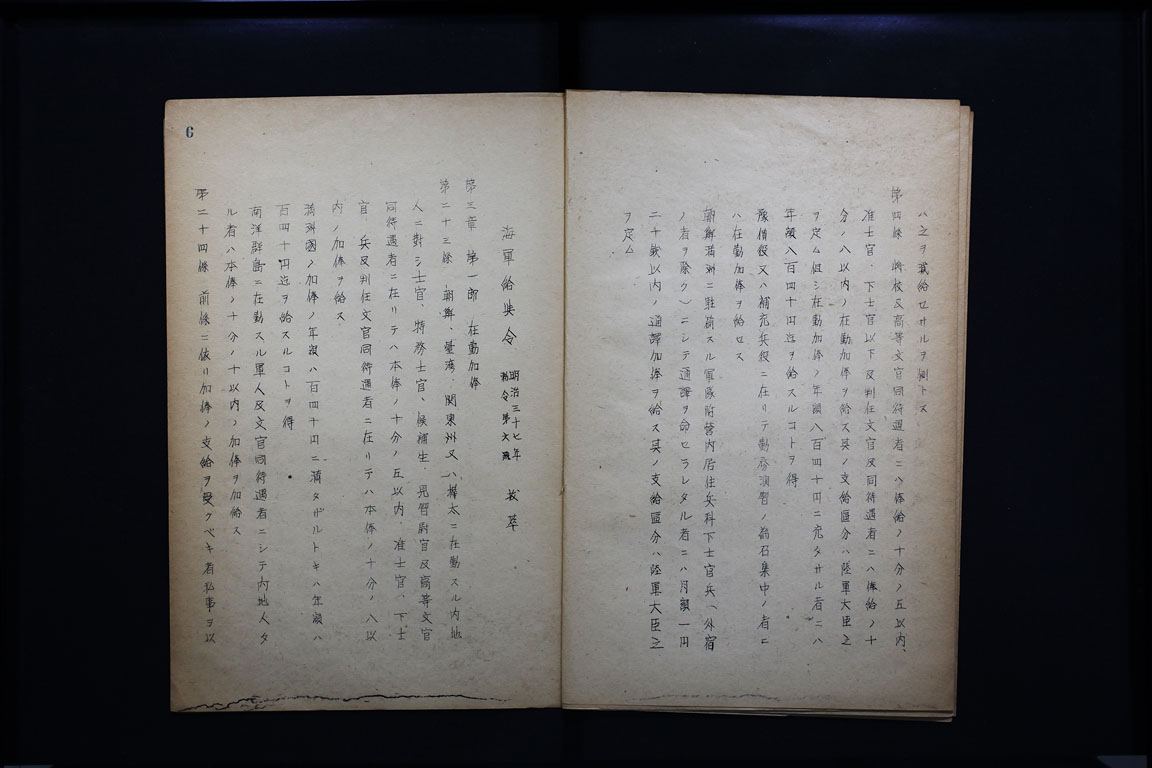 ハ之ヲ減給セサルヲ例トス
第四條 將校及高等文官同待遇者ニハ俸給ノ十分ノ五以内、
准士官、下士官以下及判任文官及同待遇者ニハ俸給ノ十
分ノ八以内ノ在勤加俸ヲ給ス其ノ支給區分ハ陸軍大臣之
ヲ定ム但シ在勤加俸ノ年額八百四十円ニ充タサル者ニハ
年額八百四十円迄ヲ給スルコトヲ得
豫備役又ハ補充兵役ニ在リテ勤務演習ノ為召集中ノ者ニ
ハ在勤加俸ヲ給セス
朝鮮満洲ニ駐箚スル軍隊附営内居住兵科下士官兵(外宿
ノ者ヲ除ク)ニシテ通譯ヲ命セラレタル者ニハ月額一円
二十銭以内ノ通譯加俸ヲ給ス其ノ支給區分ハ陸軍大臣之
ヲ定ム
海軍給與令 明治三十七年 勅令第六號 抜萃
第三章 第一節 在勤加俸
第二十三條 朝鮮、臺湾、関東州又ハ樺太ニ在勤スル内地
人ニ對シ士官、特務士官、候補生、見習尉官及高等文官
同待遇者ニ在リテハ本俸ノ十分ノ五以内、准士官、下士
官、兵及判任文官同待遇者ニ在リテハ本俸ノ十分ノ八以
内ノ加俸ヲ給ス
満洲國ノ加俸ノ年額ハ百四十円ニ満タザルトキハ年額ハ
百四十円迄ヲ給スルコトヲ得
南洋群島ニ在勤スル軍人及文官同待遇者ニシテ内地人タ
ル者ハ本俸ノ十分ノ十以内ノ加俸ヲ加給ス
第二十四條 前條ニ依リ加俸ノ支給ヲ受クベキ者私事ヲ以
6